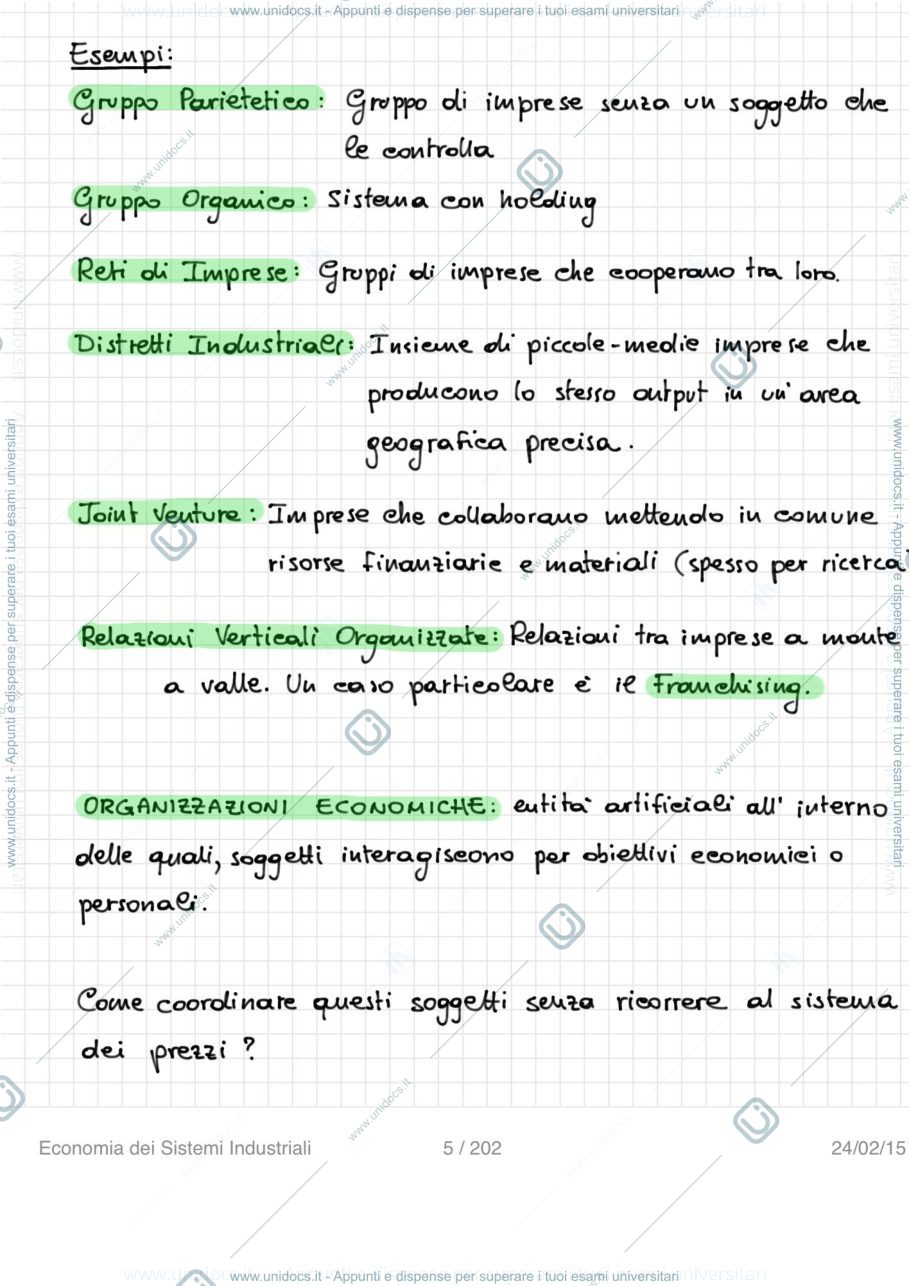 www.unidocs.it - Appunti e dispense per superare i tuoi esami universitari
Esempi:
Gruppo Parietetico: Gruppo di imprese senza un soggetto che
le controlla
Gruppo Organico: Sistema con holding
Reti di Imprese: Gruppi di imprese che cooperano tra loro.
Distretti Industriali: Insieme di piccole-medie imprese che
producono lo stesso output in un'area
geografica precisa.
Joint Venture: Imprese che collaborano mettendo in comune
risorse finanziarie e materiali (spesso per ricerca)
Relazioni Verticali Organizzate: Relazioni tra imprese a monte
a valle. Un caso particolare è il Franchising.
ORGANIZZAZIONI ECONOMICHE: entità artificiali all'interno
delle quali, soggetti interagiscono per obiettivi economici o
personali.
Come coordinare questi soggetti senza ricorrere al sistema
dei prezzi?
Economia dei Sistemi Industriali 5 / 202 24/02/15
www.unidocs.it - Appunti e dispense per superare i tuoi esami universitari
www.unidocs.it - Appunti e dispense per superare i tuoi esami universitari
www.unidocs.it - Appunti e dispense per superare i tuoi esami universitari
www.unidocs.it
www.unidocs.it
www.unidocs.it
www.unidocs.it
www.unidocs.it
www.unidocs.it